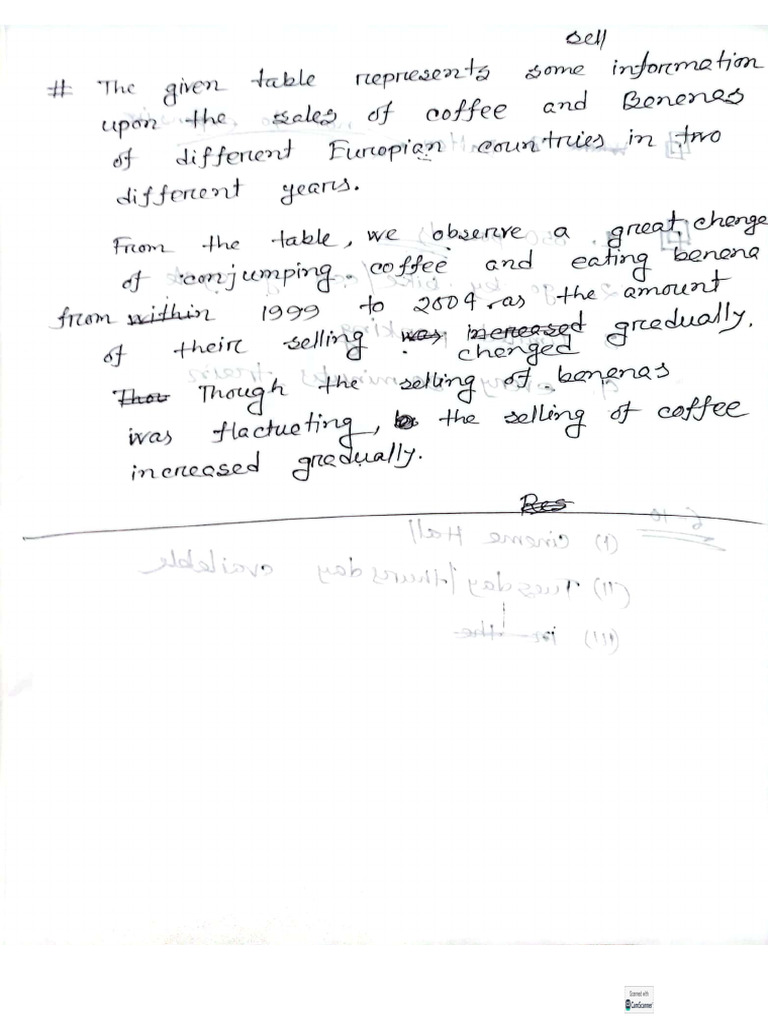 sell
# The given table represents some information
upon the sales of coffee and Benenas
of different Europian countries in two
different years.
From the table, we observe a great chenge
of conjumping coffee and eating benena
from within 1999 to 2004 as the amount
of their selling was increased gredually.
chenged
Thou Though the selling of benenas
was flactueting, the selling of coffee
increased gredually.
Res
6-10
(i) Cineme Hall
(ii) Tuesday/thursday available
(iii) the
Scanned with
CamScanner